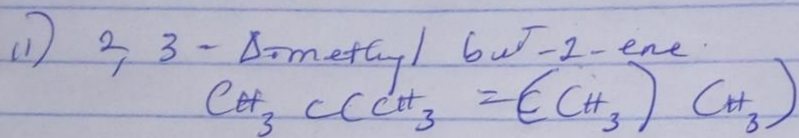 ii) 2, 3 - Dimethyl but-2-ene.
CH₃ C(CH₃ = C(CH₃) CH₃)